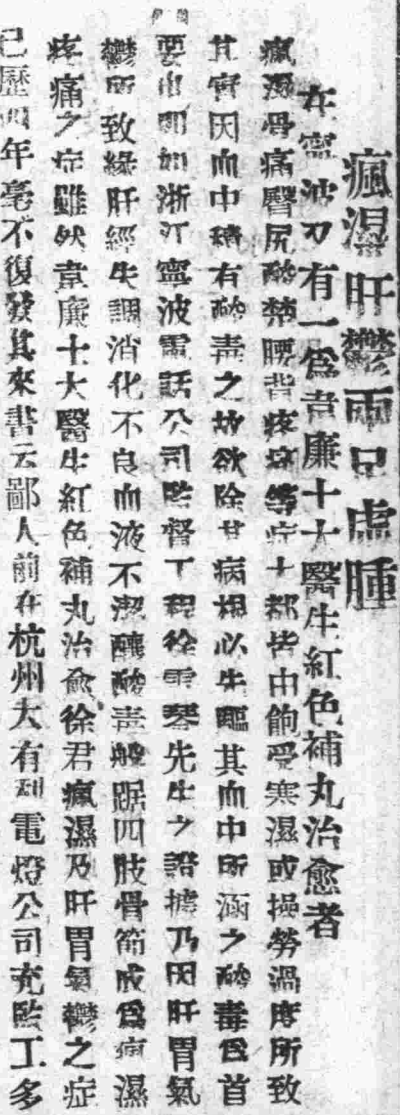 瘋濕肝鬱兩足虛腫
在寧波又有一爲韋廉士大醫生紅色補丸治愈者
瘋濕骨痛臀尻酸楚腰背疼痛等症大都皆由飽受寒濕或操勞過度所致
其實因血中積有酸毒之故欲除其病根必先驅其血中所涵之酸毒爲首
要也卽如浙江寧波電話公司監督工程徐雲琴先生之證據乃因肝胃氣
鬱所致緣肝經失調消化不良血液不潔釀酸毒盤踞四肢骨節成爲瘋濕
疼痛之症雖然韋廉士大醫生紅色補丸治愈徐君瘋濕及肝胃氣鬱之症
已歷四年毫不復發其來書云鄙人前在杭州大有利電燈公司充監工多